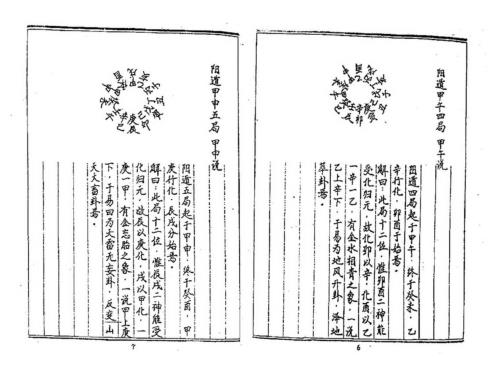 阳道甲午四局 甲午说
阳道四局起于甲午，终于癸未，乙
辛行化，卯酉于始焉。
解曰：此局十二位，惟卯酉二神能
受化归元，故化卯以辛，化酉以乙
一辛一乙，有金水相背之象，一说
乙上辛下，于易为地风升卦，泽地
萃卦焉。
6
阳道甲申五局 甲申说
阳道五局起于甲申，终于癸酉，甲
庚行化，辰戌分始焉。
解曰：此局十二位，惟辰戌二神能受
化归元，故辰以庚化，戌以甲化，一
庚一甲，有金忘胎之象，一说甲上庚
下，于易曰为天雷无妄卦，反变山
天大畜卦焉。
7